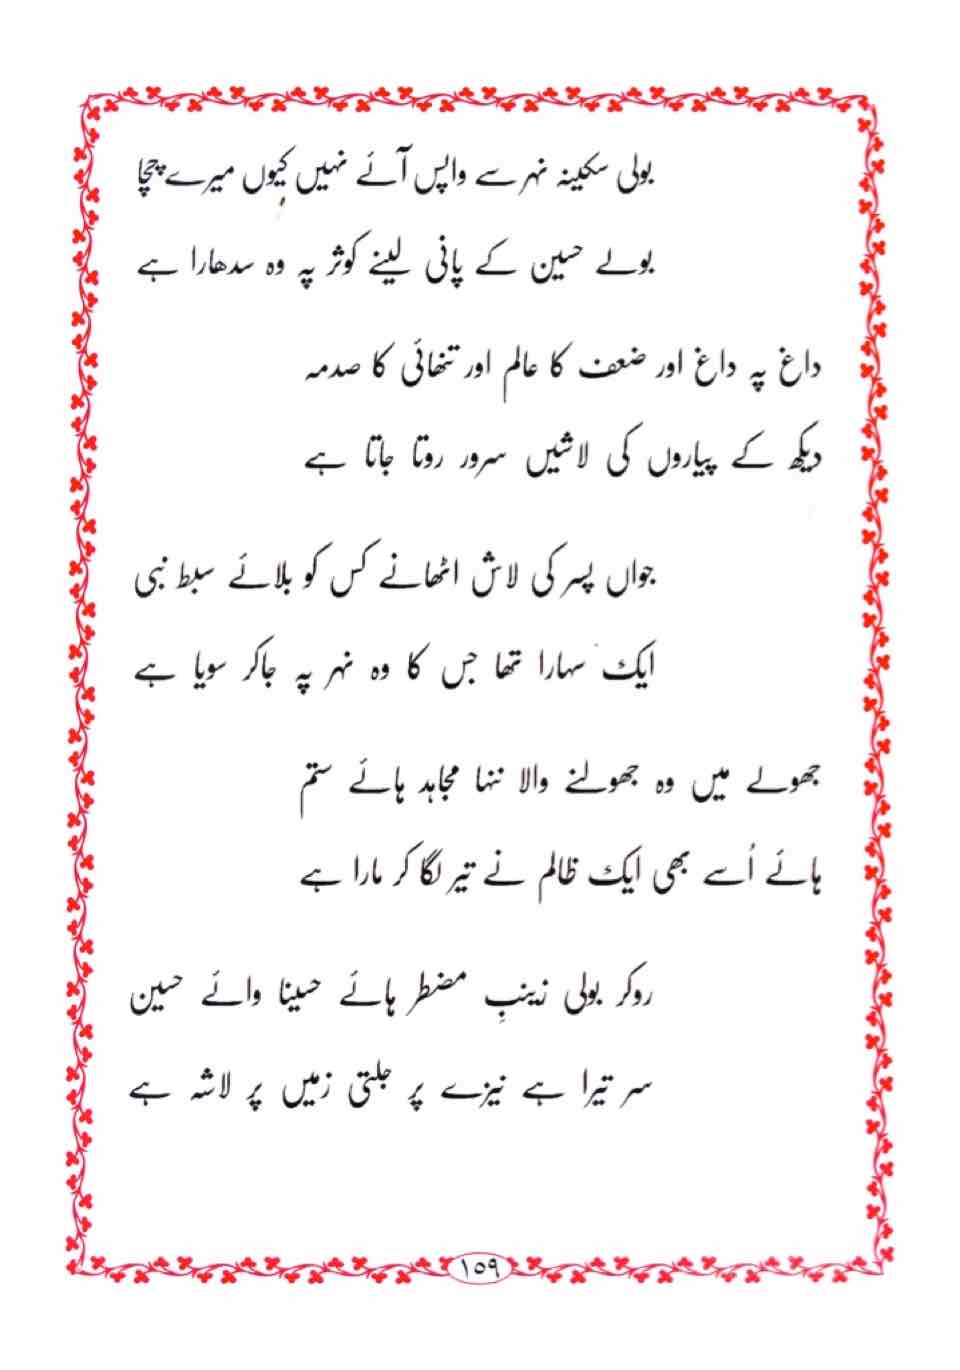 بولی سکینہ نہر سے واپس آئے نہیں کیوں میرے چچا
بولے حسین کے پانی لینے کوثر پہ وہ سدھارا ہے
داغ پہ داغ اور ضعف کا عالم اور تنھائی کا صدمہ
دیکھ کے پیاروں کی لاشیں سرور روتا جاتا ہے
جواں پسر کی لاش اٹھانے کس کو بلائے سبط نبی
ایک سہارا تھا جس کا وہ نہر پہ جاکر سویا ہے
جھولے میں وہ جھولنے والا ننھا مجاہد ہائے ستم
ہائے اُسے بھی ایک ظالم نے تیر لگا کر مارا ہے
روکر بولی زینبِ مضطر ہائے حسینا وائے حسین
سر تیرا ہے نیزے پر جلتی زمیں پر لاشہ ہے
۱۵۹